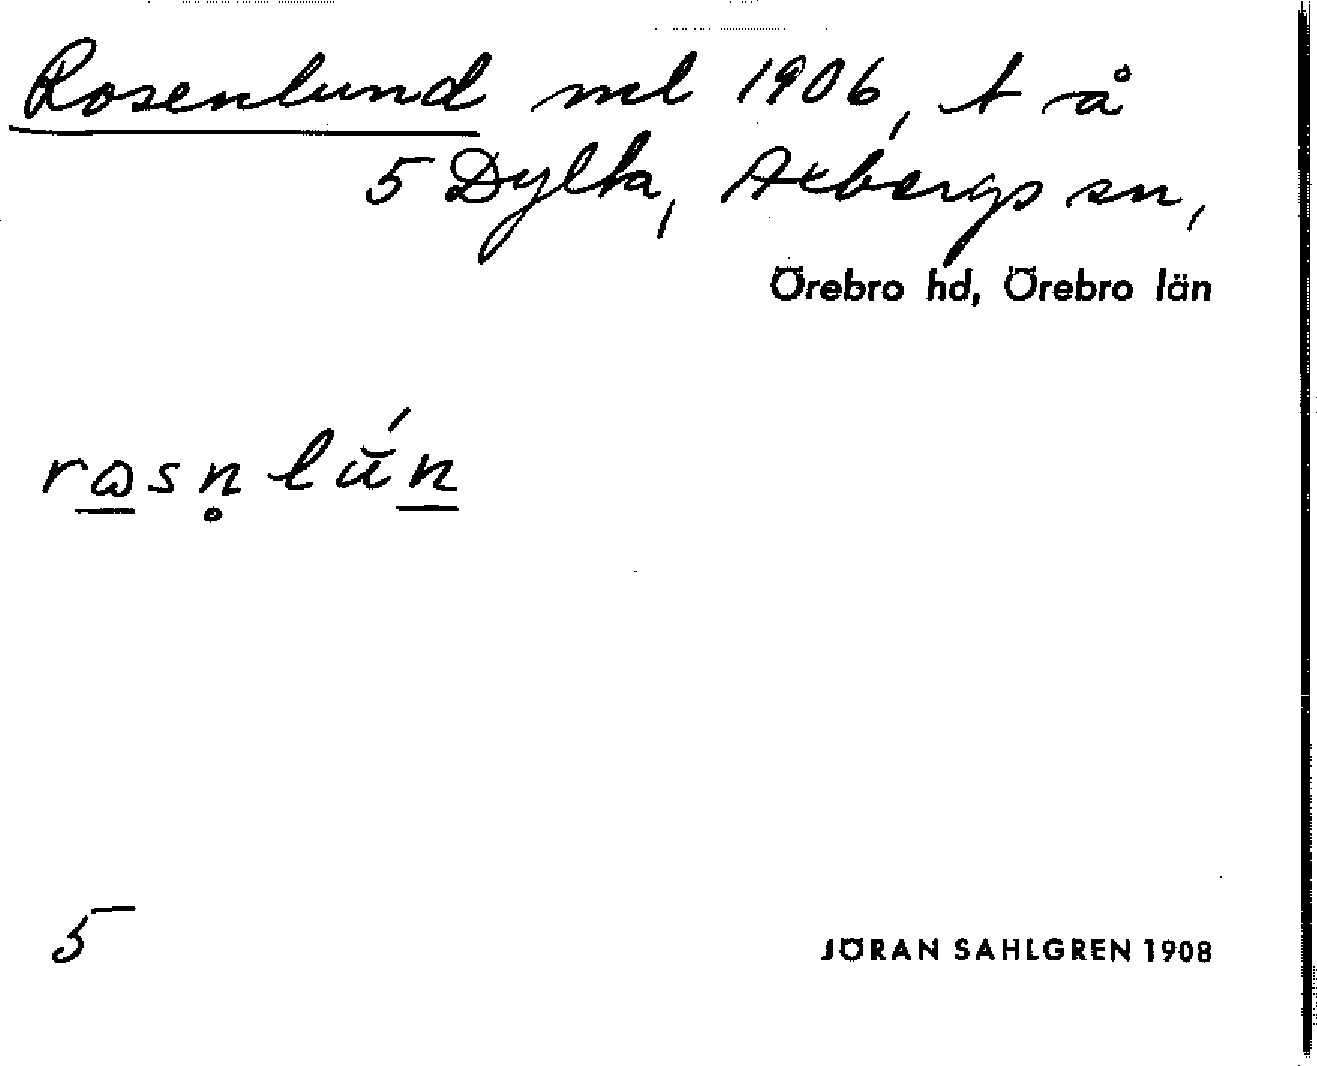 Rosenlund ml 1906, t å
5 Dylta, Axbergs sn,
Örebro hd, Örebro län
rɷsn̥lŭ́n
5
JÖRAN SAHLGREN 1908